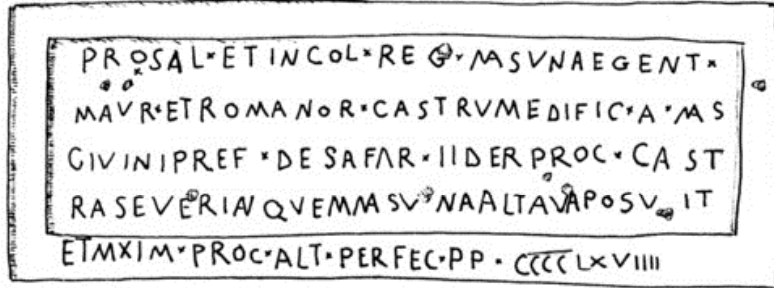 PROSAL·ETINCOL·REG·MASVNAEGENT·
MAVR·ETROMANOR·CASTRVMEDIFIC·A·MAS
GIVINIPREF·DESAFAR·IIDERPROC·CAST
RASEVERIANQVEMMASVNAALTAVAPOSVIT
ETMXIM·PROC·ALT·PERFEC·PP·CCCCLXVIIII